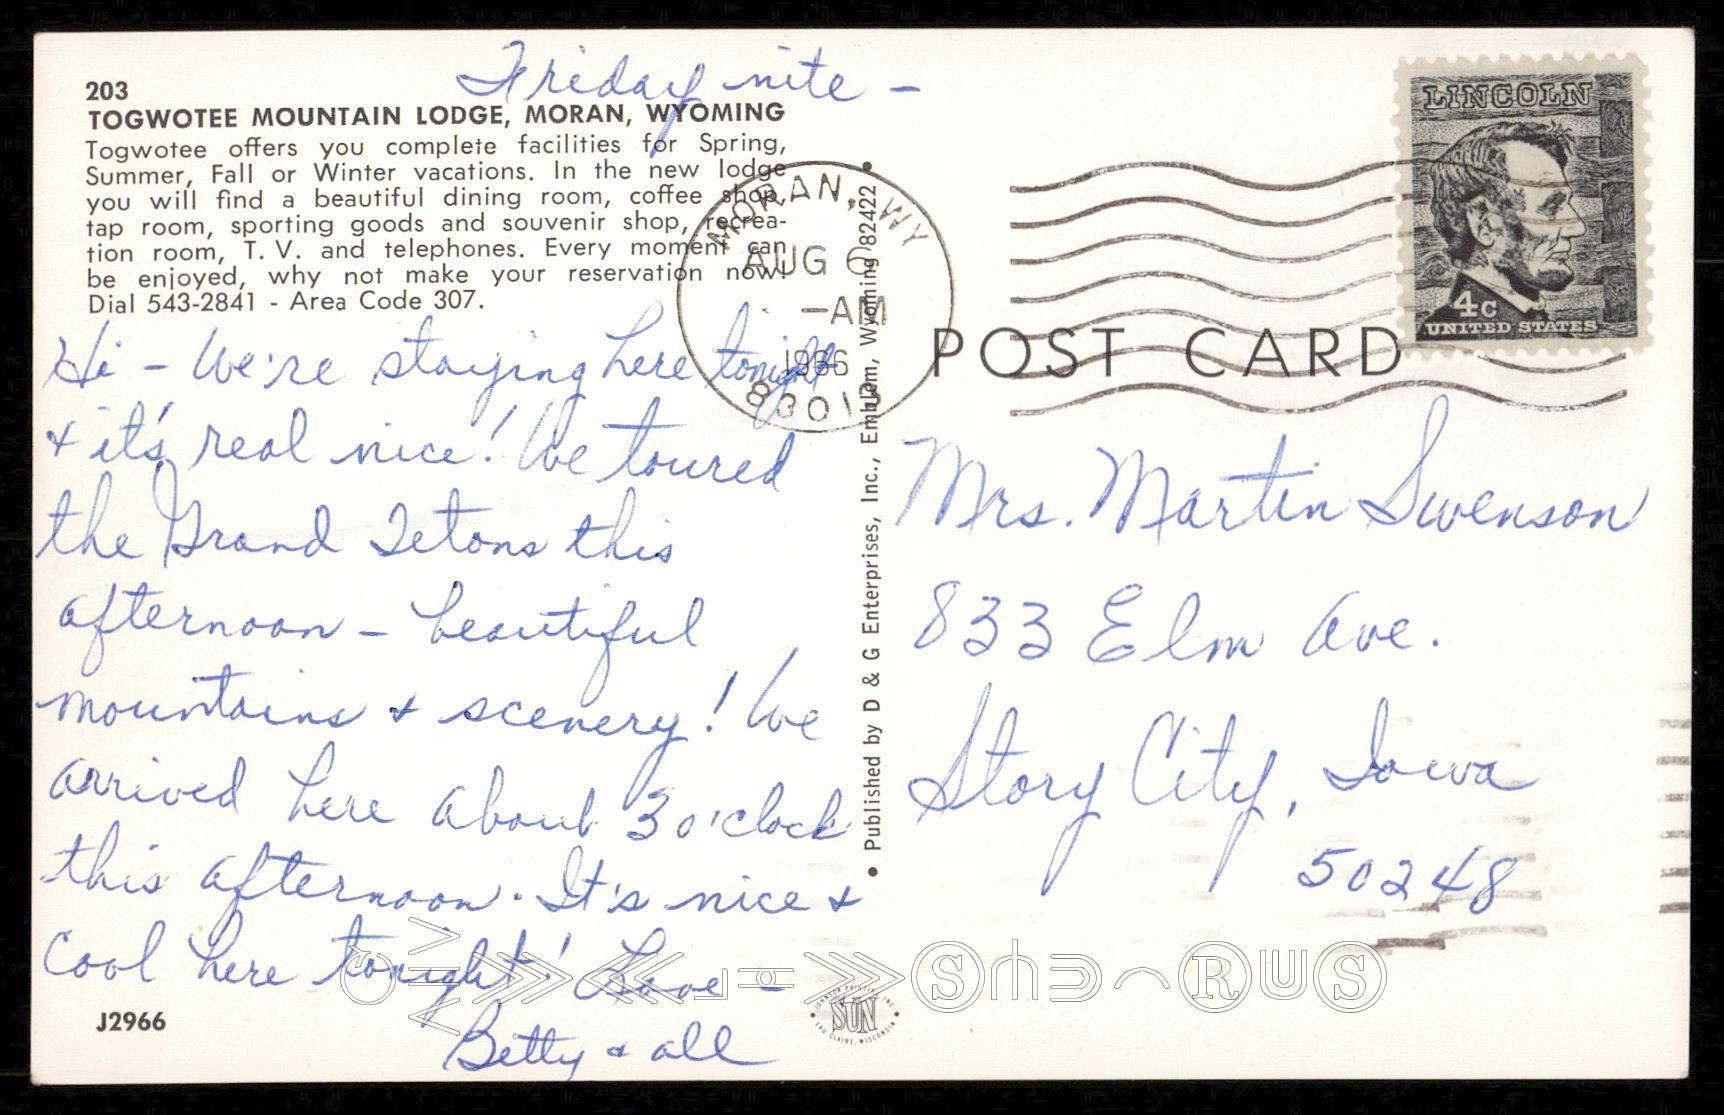 Friday nite -
203
TOGWOTEE MOUNTAIN LODGE, MORAN, WYOMING
Togwotee offers you complete facilities for Spring,
Summer, Fall or Winter vacations. In the new lodge
you will find a beautiful dining room, coffee shop,
tap room, sporting goods and souvenir shop, recrea-
tion room, T. V. and telephones. Every moment can
be enjoyed, why not make your reservation now!
Dial 543-2841 - Area Code 307.
Hi - We're staying here tonight
& it's real nice! We toured
the Grand Tetons this
afternoon - beautiful
mountains & scenery! We
arrived here about 3 o'clock
this afternoon. It's nice &
cool here tonight! Love -
Betty & all
J2966
MORAN, WY
AUG 6
-AM
1966
83013
• Published by D & G Enterprises, Inc., Emblem, Wyoming 82422 •
LINCOLN
4c
UNITED STATES
POST CARD
Mrs. Martin Swenson
833 Elm Ave.
Story City, Iowa
50248
JOHNSON PRINTING INC.
SUN
EAU CLAIRE, WISCONSIN